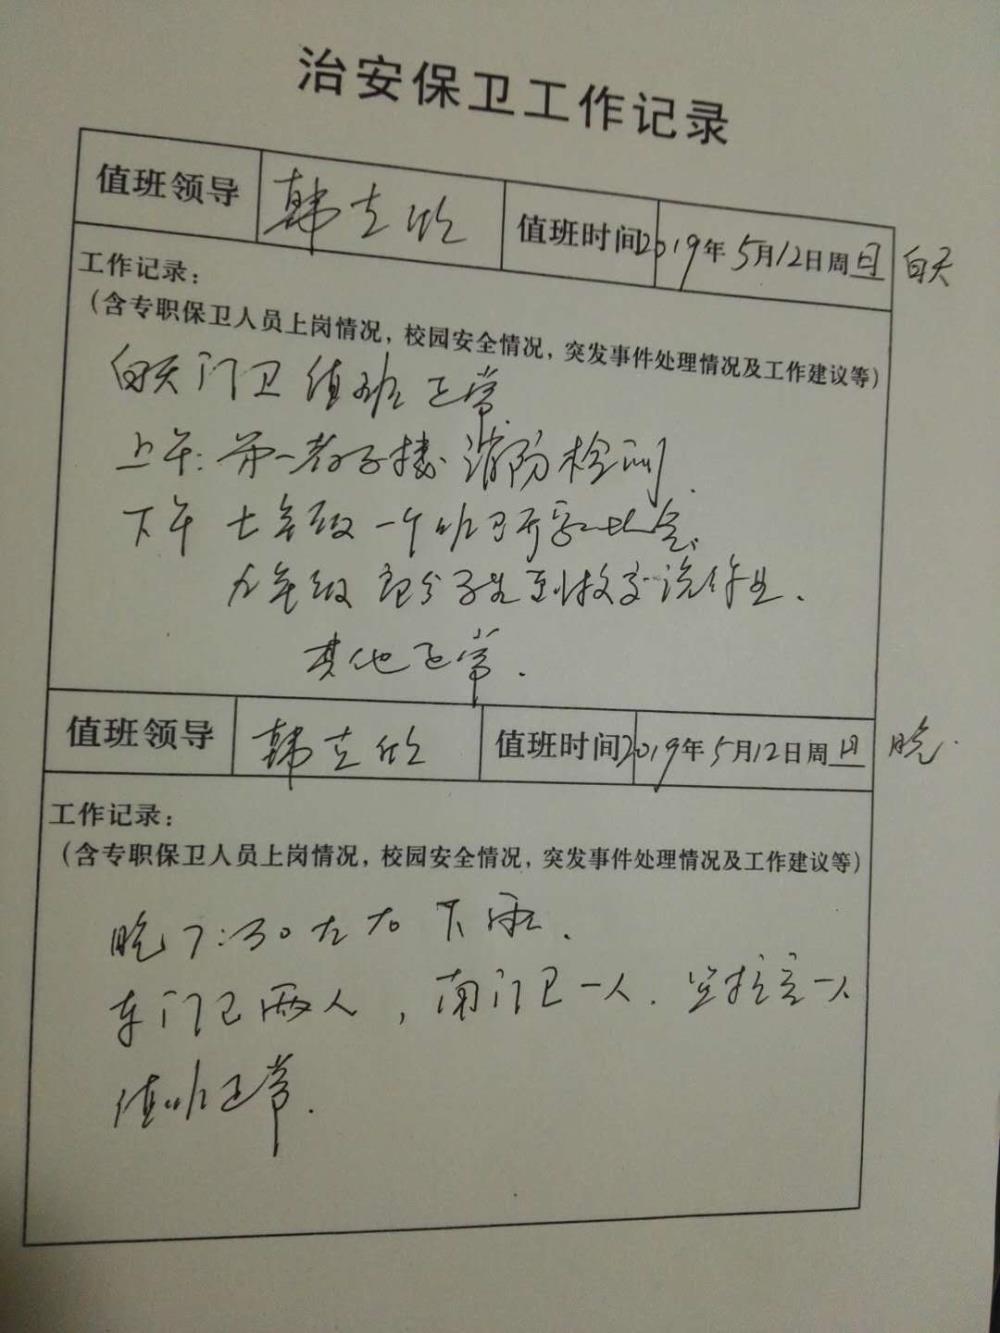 治安保卫工作记录
值班领导 韩立欣 值班时间 2019年5月12日周日 白天
工作记录：
（含专职保卫人员上岗情况，校园安全情况，突发事件处理情况及工作建议等）
白天门卫值班正常
上午：第一教学楼消防检测.
下午 七年级一个班召开家长会、
九年级部分学生到校交流作业.
其他正常.
值班领导 韩立欣 值班时间 2019年5月12日周日 晚.
工作记录：
（含专职保卫人员上岗情况，校园安全情况，突发事件处理情况及工作建议等）
晚7:30左右下雨.
东门卫两人，南门卫一人. 监控室一人
值班正常.